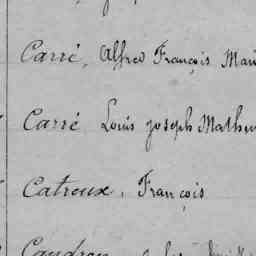 Carré, Alfred François
Carré Louis Joseph
Catroux, François